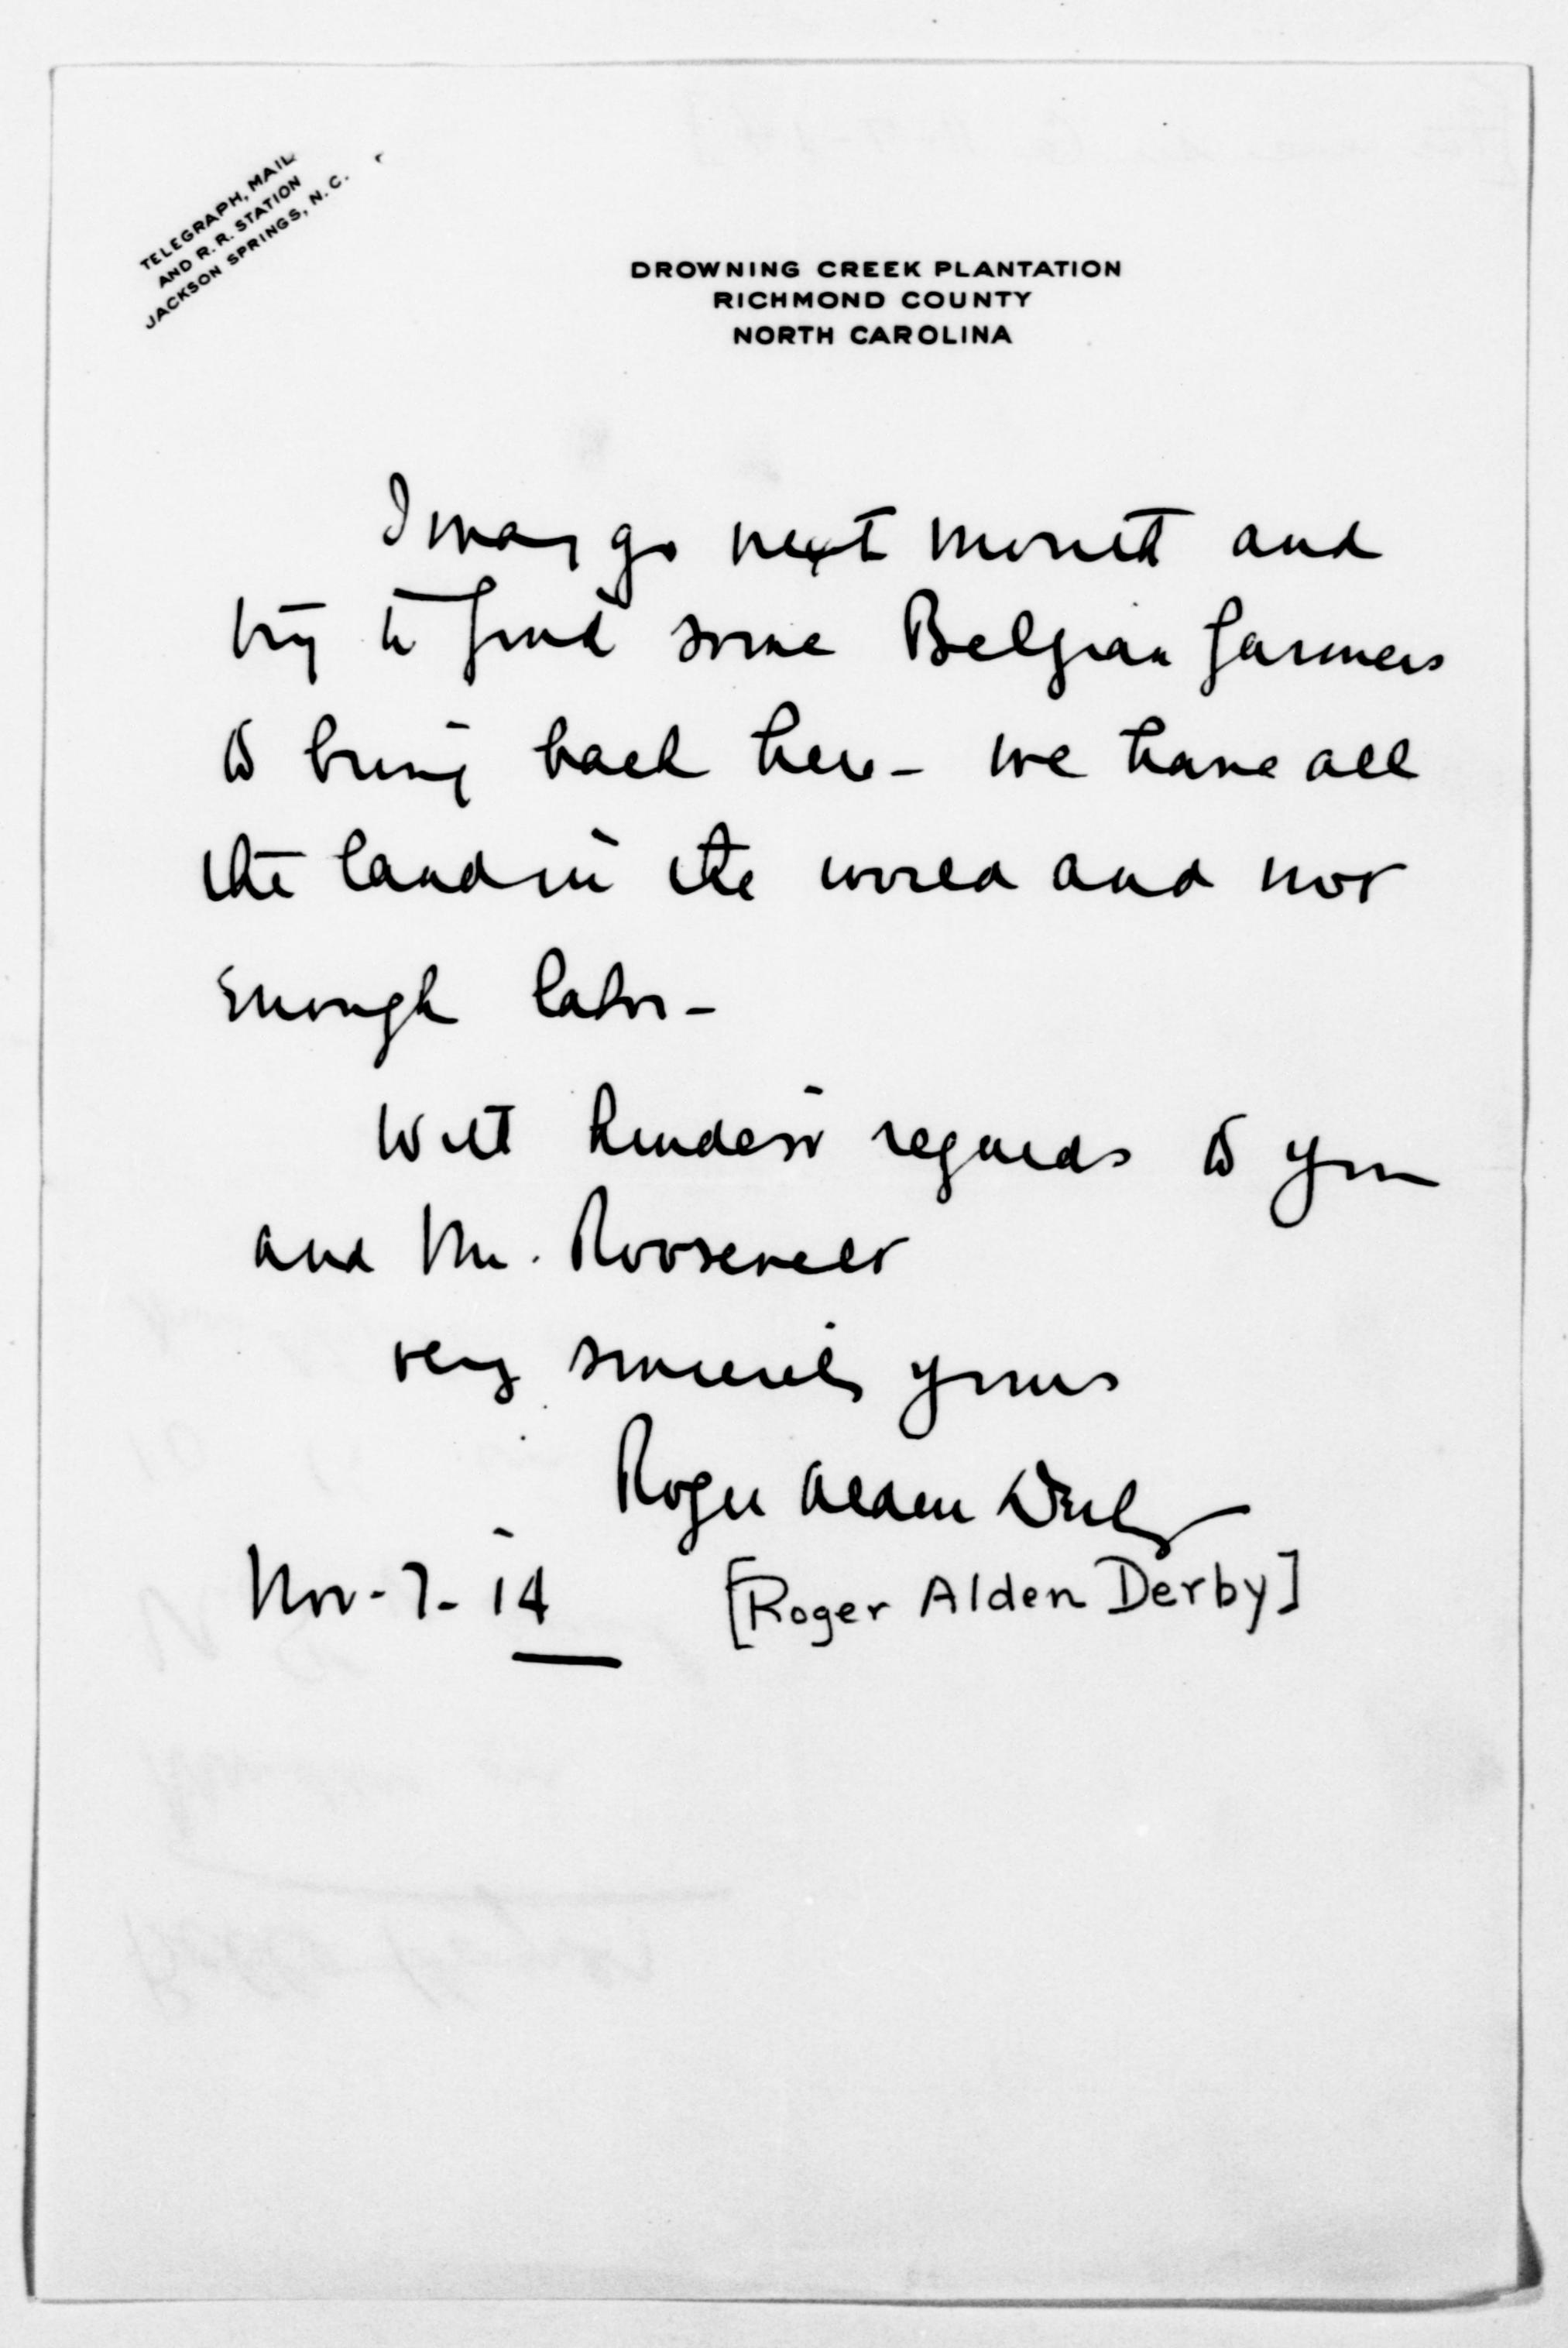 TELEGRAPH, MAIL
AND R. R. STATION
JACKSON SPRINGS, N. C.
DROWNING CREEK PLANTATION
RICHMOND COUNTY
NORTH CAROLINA
I may go next month and
try to find some Belgian farmers
to bring back here - we have all
the land in the world and not
enough labor -
With kindest regards to you
and Mr. Roosevelt
very sincerely yours
Roger Alden Derby
Nov - 7 - 14
[Roger Alden Derby]